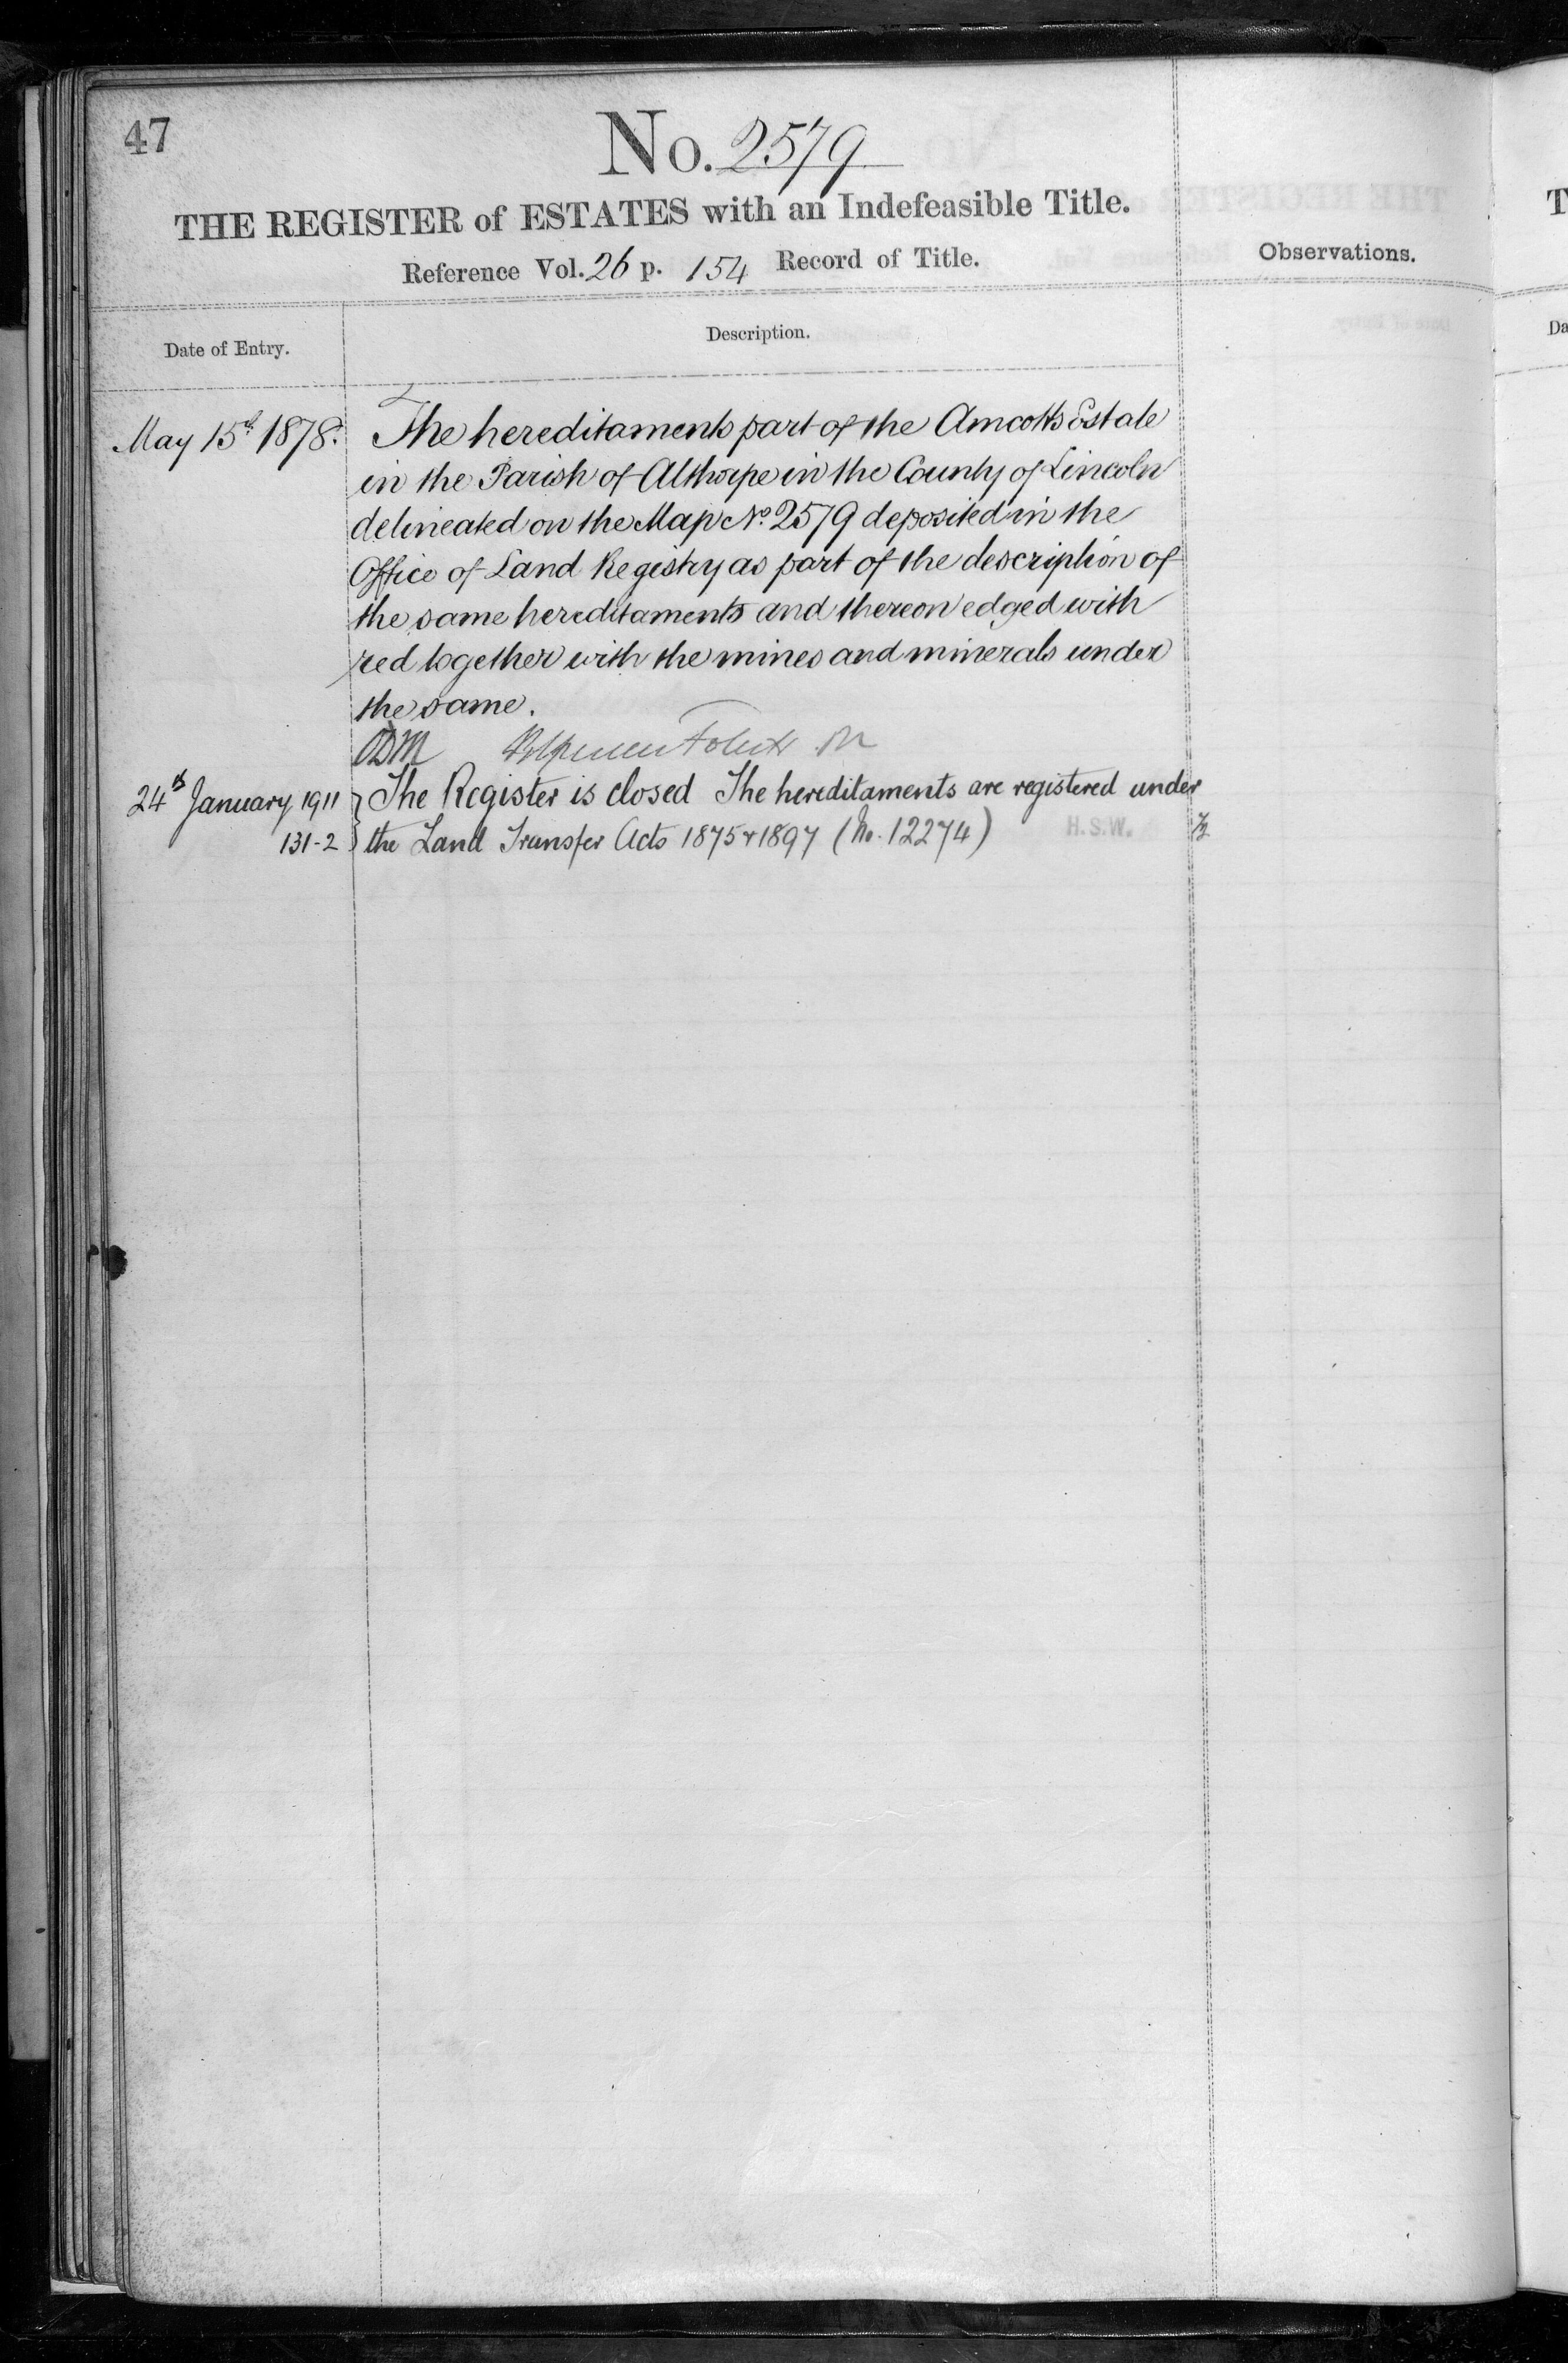 47
No. 2579
THE REGISTER of ESTATES with an Indefeasible Title.
Reference Vol. 26 p. 154 Record of Title.
Observations.
Date of Entry.
Description.
May 15th 1878. The hereditaments part of the Amcotts Estate
in the Parish of Althorpe in the County of Lincoln
delineated on the Map No. 2579 deposited in the
Office of Land Registry as part of the description of
the same hereditaments and thereon edged with
red together with the mines and minerals under
the same.
24th January 1911 The Register is closed The hereditaments are registered under
131-2 the Land Transfer Acts 1875 & 1897 (No. 12274) H.S.W.
T
Da